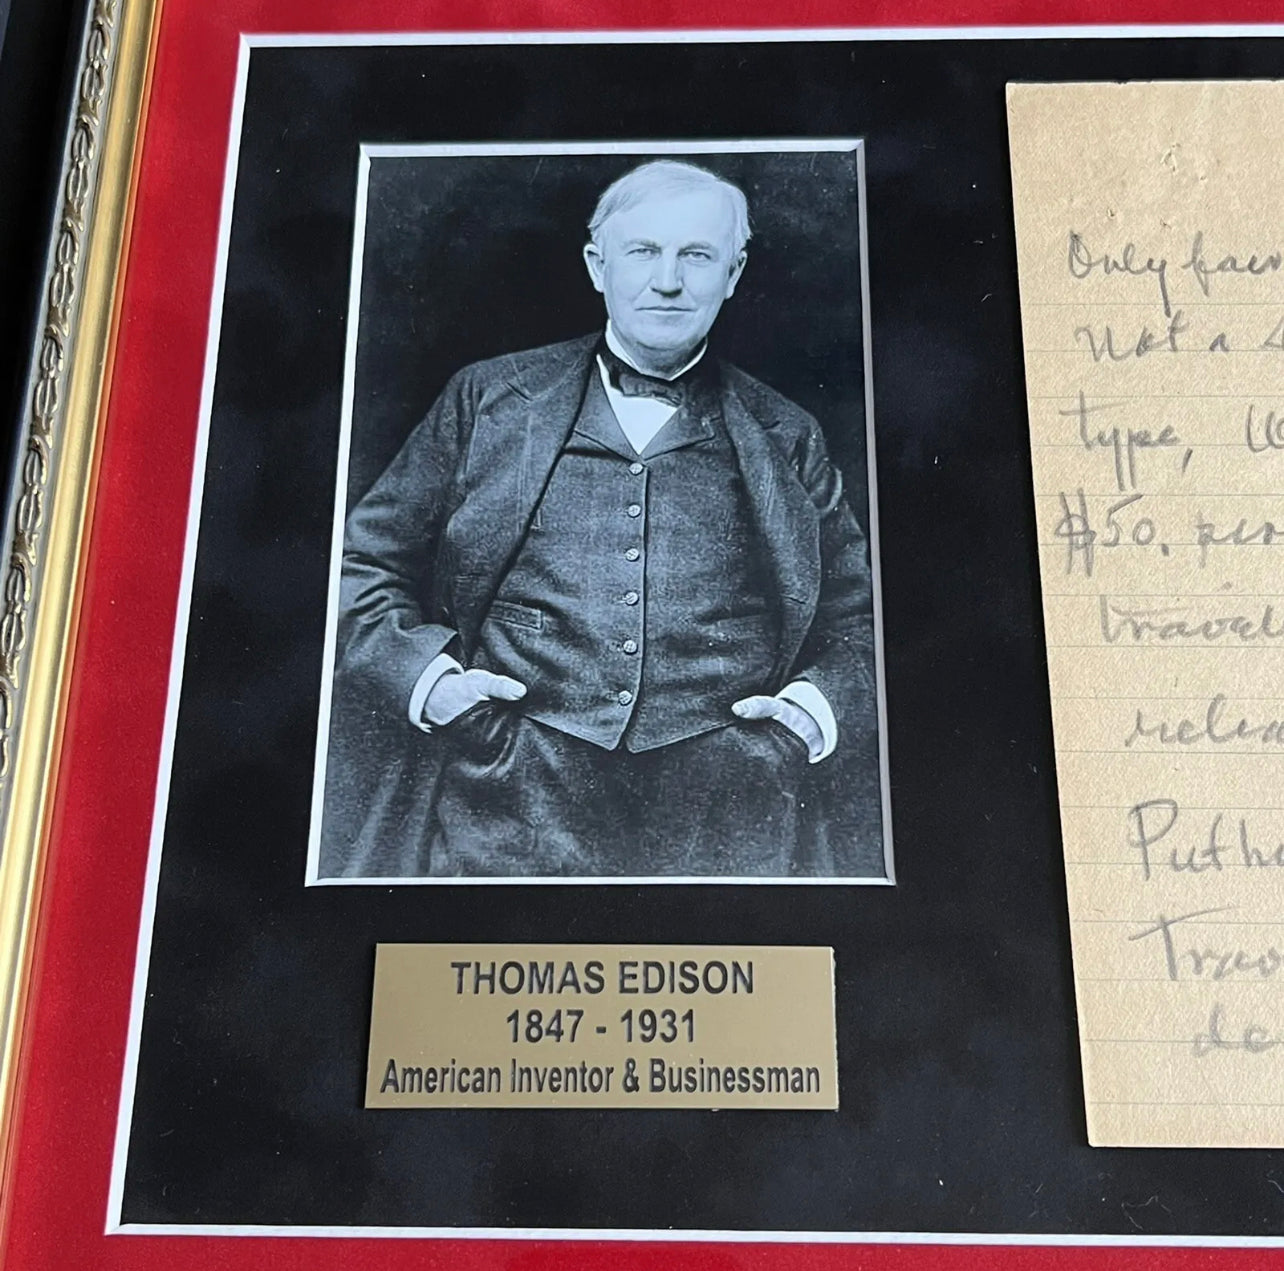 THOMAS EDISON
1847 - 1931
American Inventor & Businessman
Only
Not a
type,
$50. per
travel
Puth
Trav
de